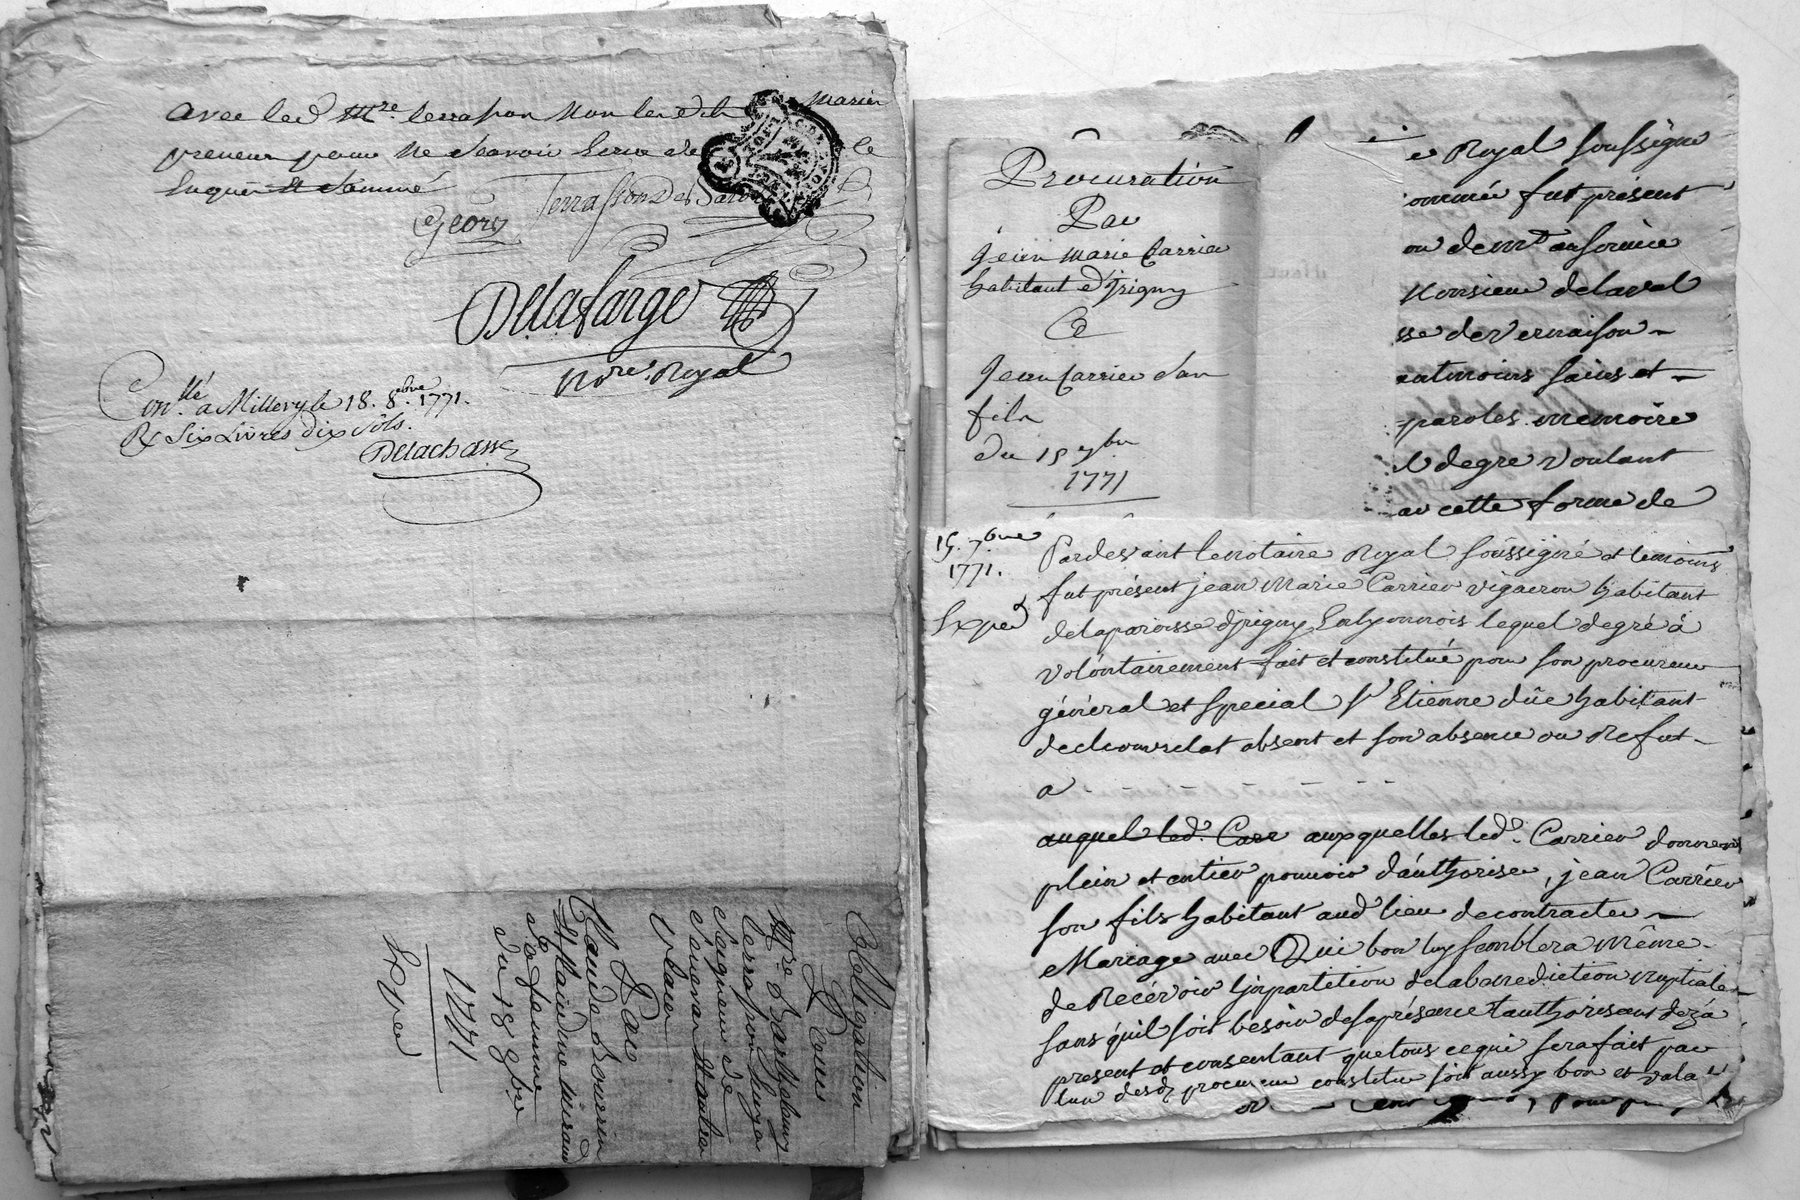 avec led Mre terrasson non led
marier
preneur pour ne scavoir Ecrire de
le
Enquis et Sommé
Georg TerrassonDe
Delafarge
Nore. Royal
Conllé a Millery le 18. 8bre. 1771.
Rx Six Livres Dix Sols.
Delachasse
Obligation
Pour
Mre Barthelemy
terrasson Ecuyer
Seigneur de
Senevas
Par
Claude
sa femme
du 18 8bre
1771
Exped
Procuration
Par
Jean Marie Carrier
habitant d'Irigny
a
Jean Carrier Son
fils
du 15 7bre
1771
e Royal Soussigne
ommée fut présent
ou demt
Monsieur delaval
sse de Vernaison
paroles memoire
degre Voulant
cette forme de
15. 7bre
1771.
Exped
Pardevant le notaire Royal Soussigné et temoins
fut présent jean Marie Carrier Vigneron habitant
delaparoisse d'jrigny Enlyonnois lequel degré à
volontairement fait et constitué pour Son procureur
général et Special Sr Etienne dûc habitant
absent et Son absence ou Refut
a
auquel led. Carr auxquelles led. Carrier donne
plein et entier pouvoir d'authorise, jean Carrier
Son fils habitant aud lieu decontracter
Mariage avec Qui bon luy Semblera Même
de Recévoir L'inpartition delabenediction nuptiale
Sans qu'il Soit besoin desaprésence l'authorisant dezà
present et consentant quetous cequi Serafait par
lun desd procureur constitue Soit aussy bon et vala